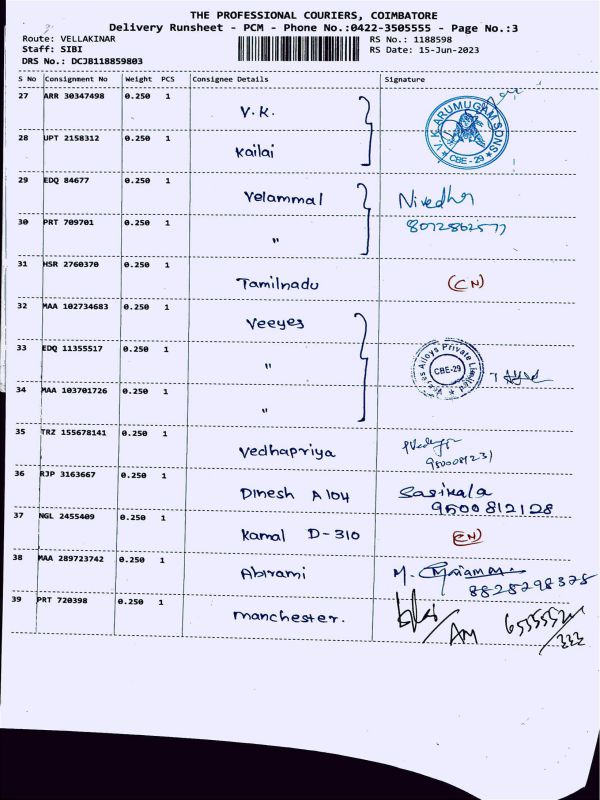 THE PROFESSIONAL COURIERS, COIMBATORE
Delivery Runsheet - PCM - Phone No.:0422-3505555 - Page No.:3
Route: VELLAKINAR RS No.: 1188598
Staff: SIBI RS Date: 15-Jun-2023
DRS No.: DCJB118859803
S No Consignment No Weight PCS Consignee Details Signature
27 ARR 30347498 0.250 1 V.K.
V.K ARUMUGAM SONS
CBE-29
28 UPT 2158312 0.250 1 Kailai
29 EDQ 84677 0.250 1 Velammal Nivedha
30 PRT 709701 0.250 1 " 8072862577
31 HSR 2760370 0.250 1 Tamilnadu (CN)
32 MAA 102734683 0.250 1 Veeyes
33 EDQ 11355517 0.250 1 "
Veeyes Alloys Private Limited
CBE-29
34 MAA 103701726 0.250 1 "
35 TRZ 155678141 0.250 1 Vedhapriya
36 RJP 3163667 0.250 1 Dinesh A 104 Sasikala
9500812128
37 NGL 2455409 0.250 1 Kamal D-310 (CN)
38 MAA 289723742 0.250 1 Abirami M.
8825298375
39 PRT 720398 0.250 1 manchester. AM